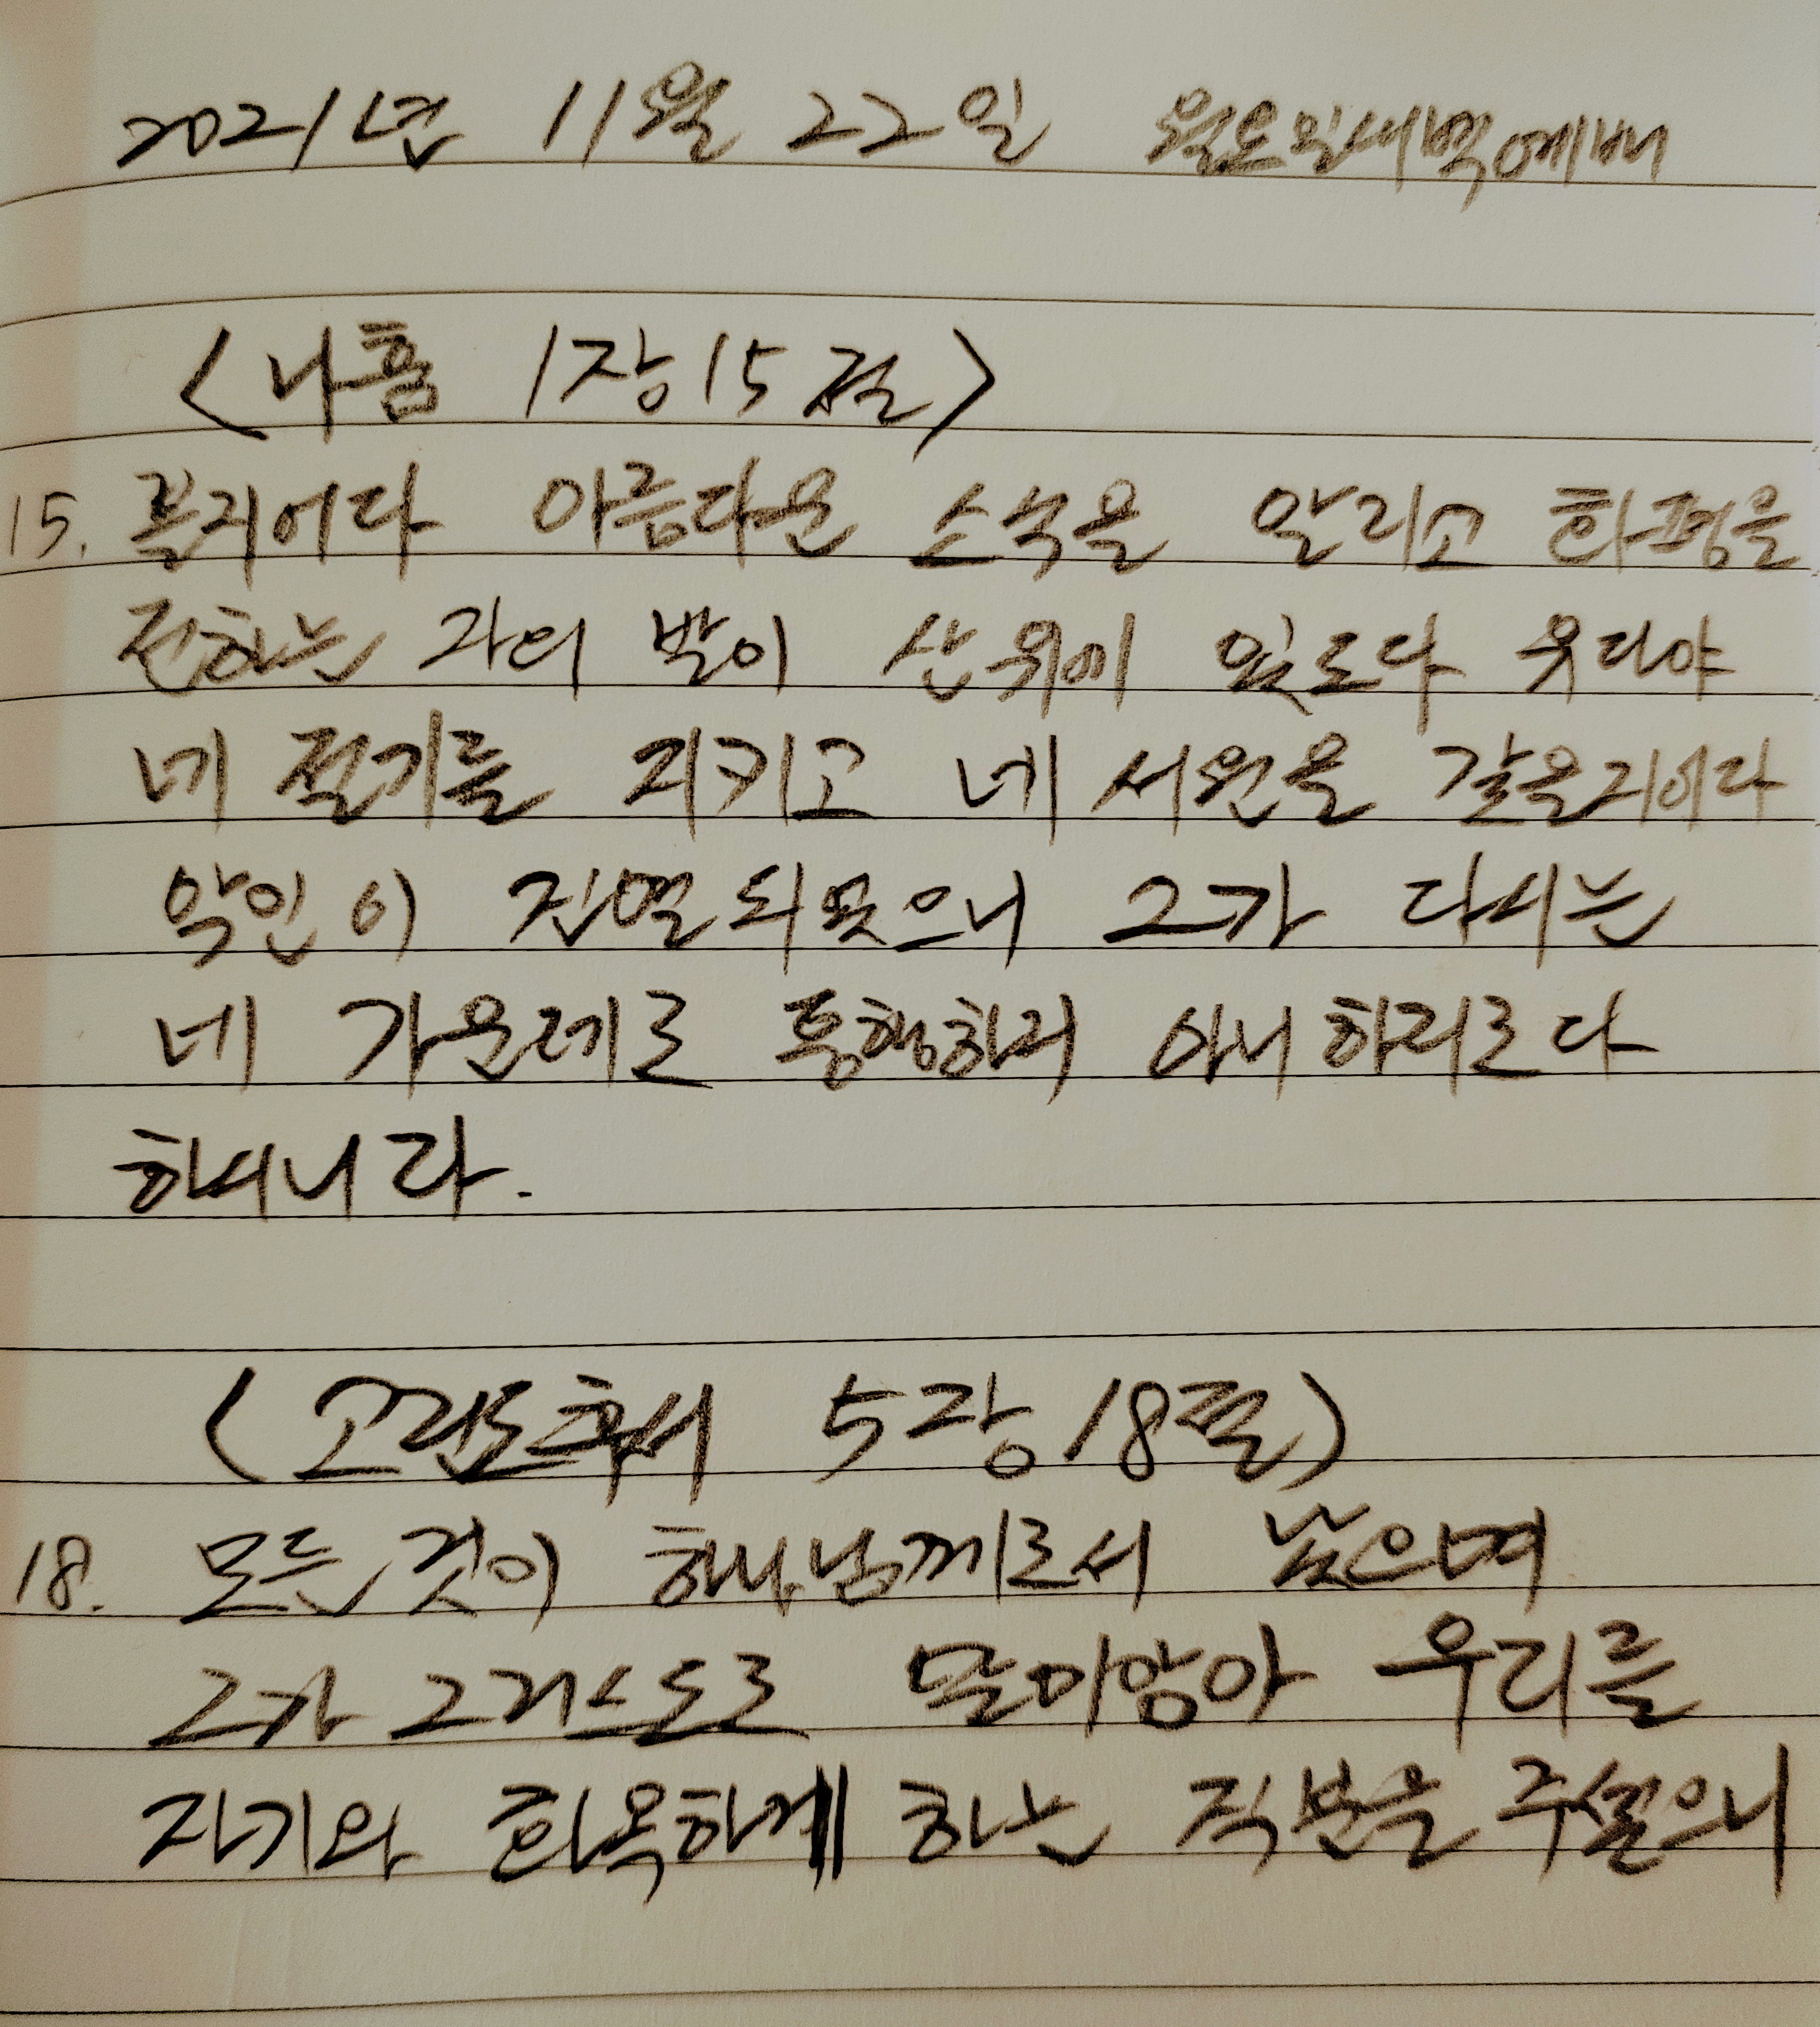 2021년 11월 22일 월요일새벽예배
<나훔 1장15절>
15. 볼지어다 아름다운 소식을 알리고 화평을
전하는 자의 발이 산위에 있도다 유다야
네 절기를 지키고 네 서원을 갚을지어다
악인이 진멸되었으니 그가 다시는
네 가운데로 통행하지 아니하리로다
하시니라.
(고린도후서 5장18절)
18. 모든 것이 하나님께로서 났으며
그가 그리스도로 말미암아 우리를
자기와 화목하게 하는 직분을 주셨으니